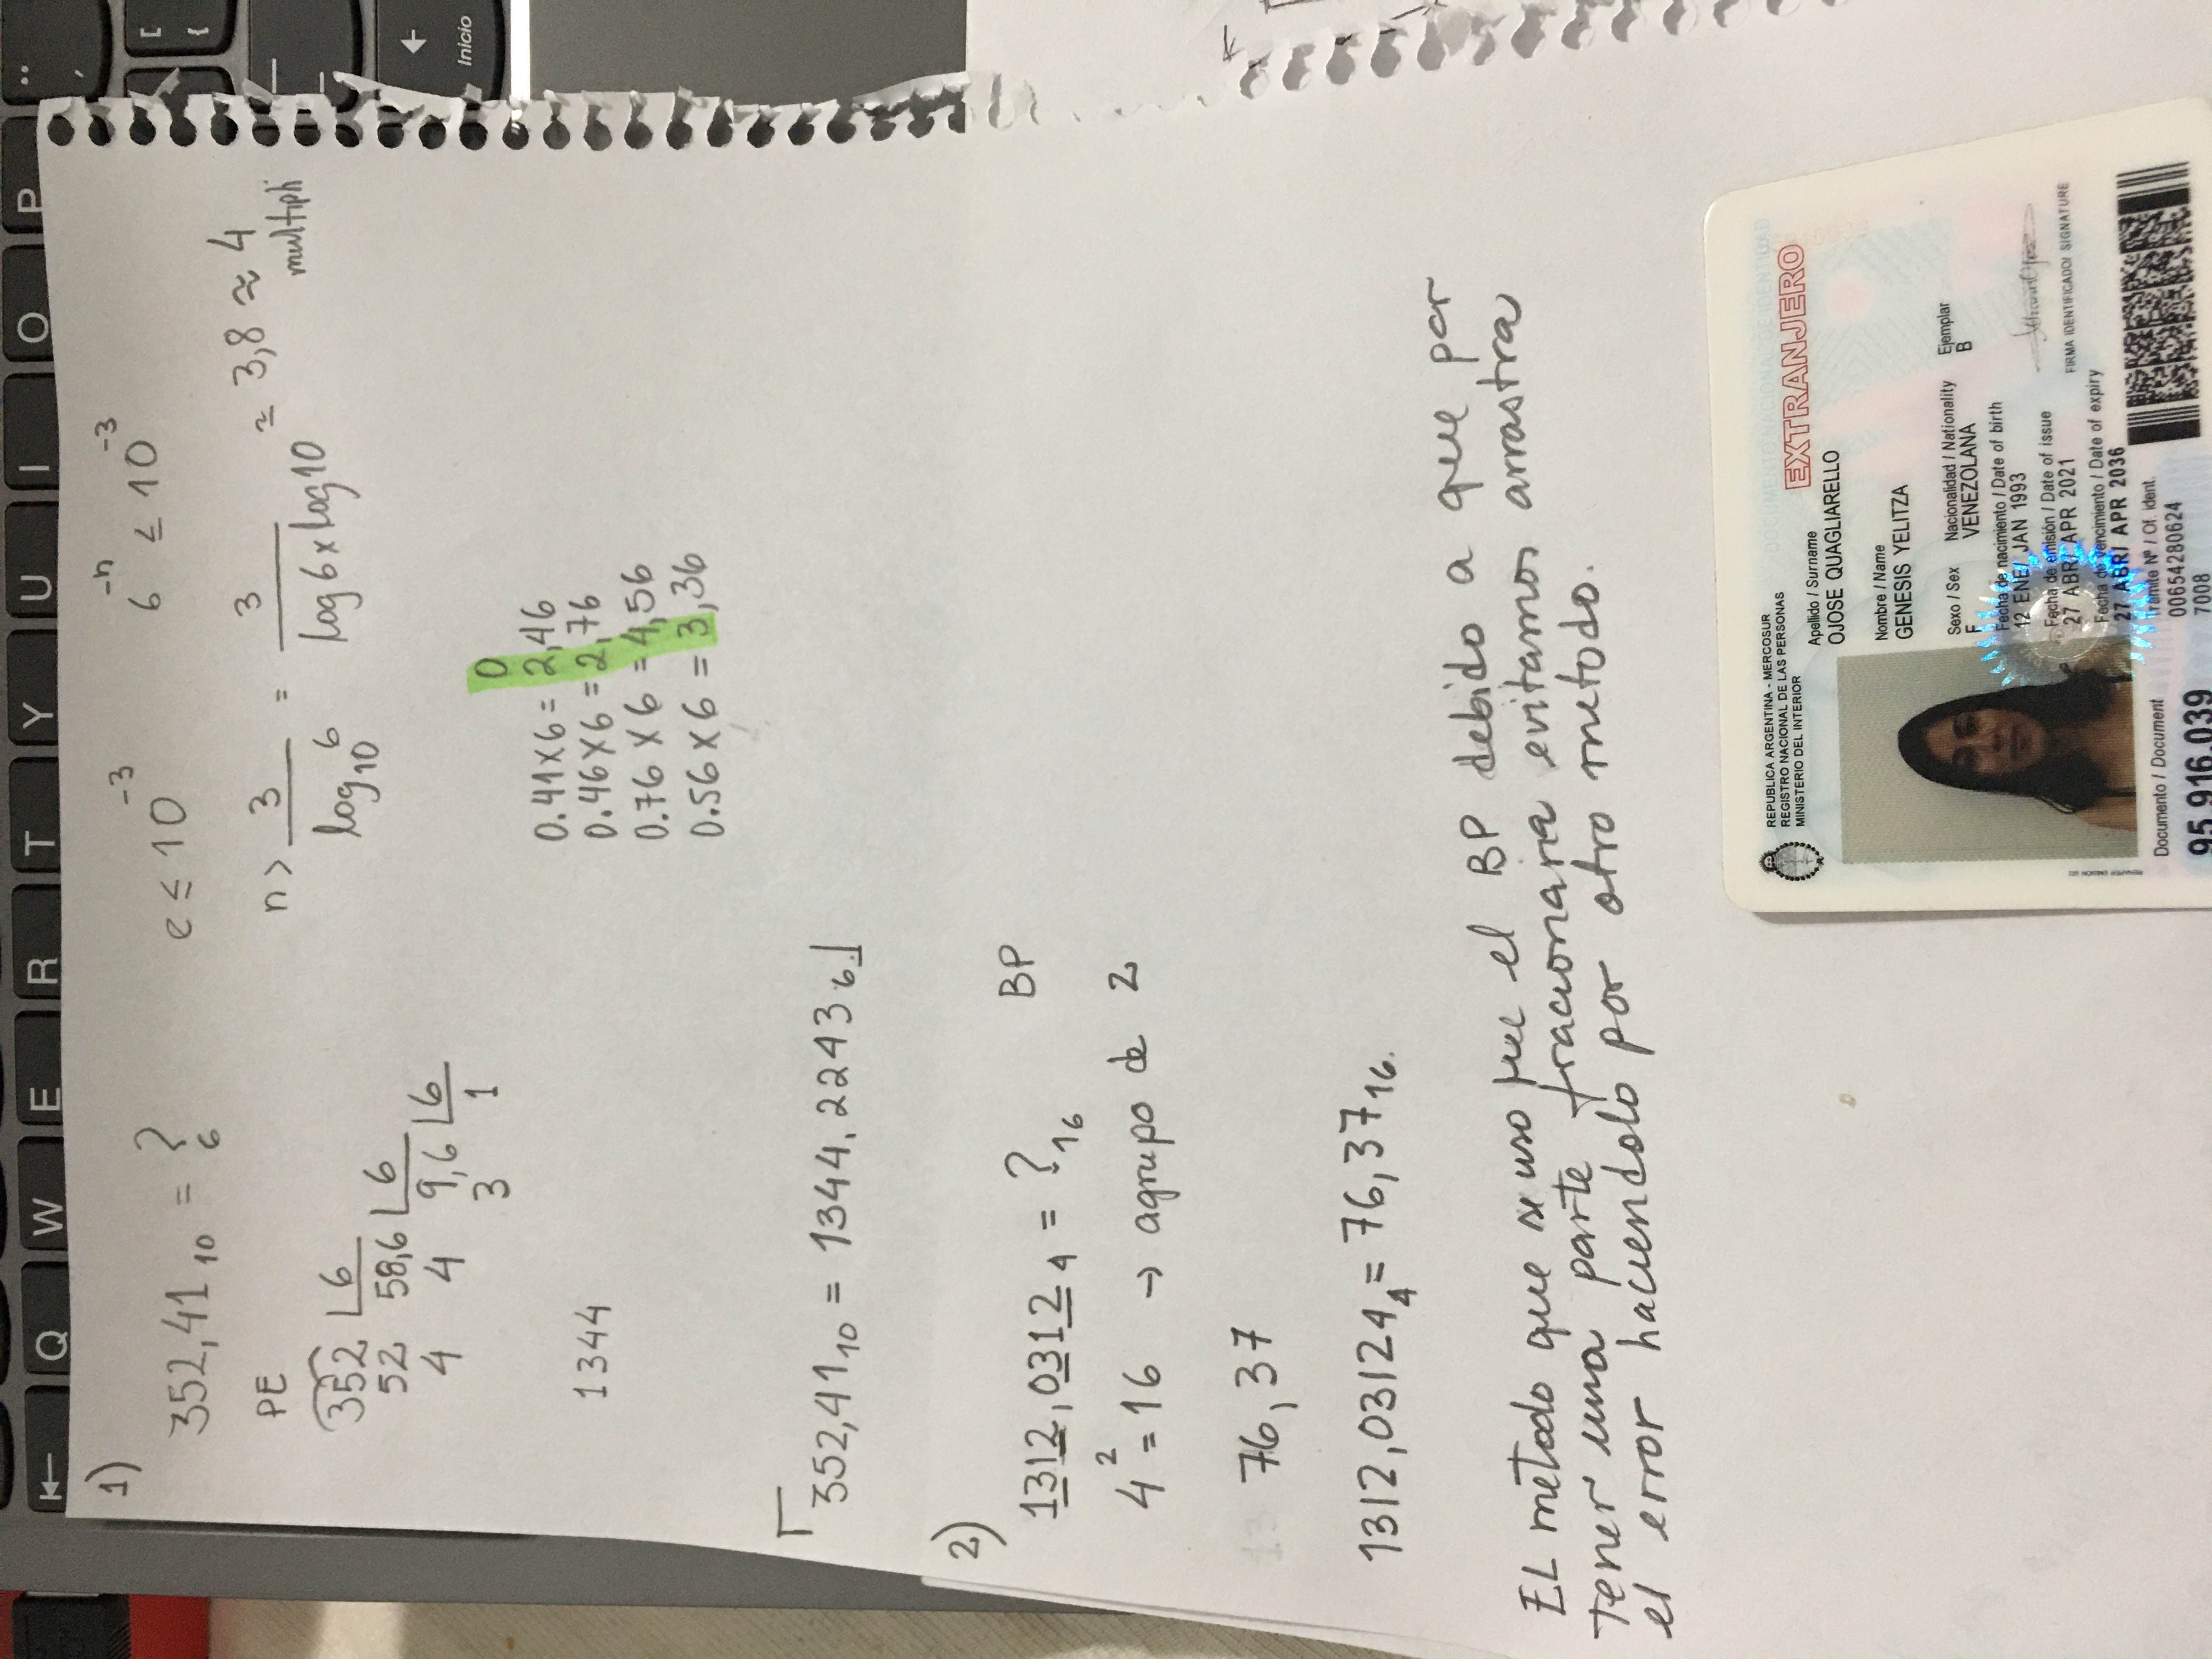 Q W E R T Y U I O P
1)
352,41 10 = ? 6
e ≤ 10^-3
6^-n ≤ 10^-3
n > 3 / log10 6 = 3 / log 6 x log 10 ≃ 3,8 ≈ 4
PE
352 | 6
52 58,6 | 6
4 4 9,6 | 6
3 1
0
0.41 x 6 = 2,46
0.46 x 6 = 2,76
0.76 x 6 = 4,56
0.56 x 6 = 3,36
1344
352,41 10 = 1344,2243 6
Inicio
2)
1312,0312 4 = ? 16 BP
4^2 = 16 → agrupo de 2
76,37
1312,03124 4 = 76,37 16.
EL metodo que se uso fue el BP debido a que por
tener una parte fracionaria evitamos arrastra
el error haciendolo por otro metodo.
REPUBLICA ARGENTINA - MERCOSUR
REGISTRO NACIONAL DE LAS PERSONAS
MINISTERIO DEL INTERIOR
DOCUMENTO NACIONAL DE IDENTIDAD
EXTRANJERO
Apellido / Surname
OJOSE QUAGLIARELLO
Nombre / Name
GENESIS YELITZA
Sexo / Sex Nacionalidad / Nationality Ejemplar
F VENEZOLANA B
Fecha de nacimiento / Date of birth
12 ENE/ JAN 1993
Fecha de emisión / Date of issue
27 ABR/ APR 2021
FIRMA IDENTIFICADO/ SIGNATURE
Fecha de vencimiento / Date of expiry
27 ABR/ APR 2036
Documento / Document
95.916.039
Trámite Nº / Of. ident.
00654280624
7008